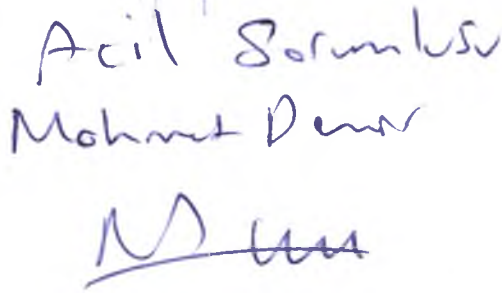 Acil Sorumlusu
Mehmet Demir